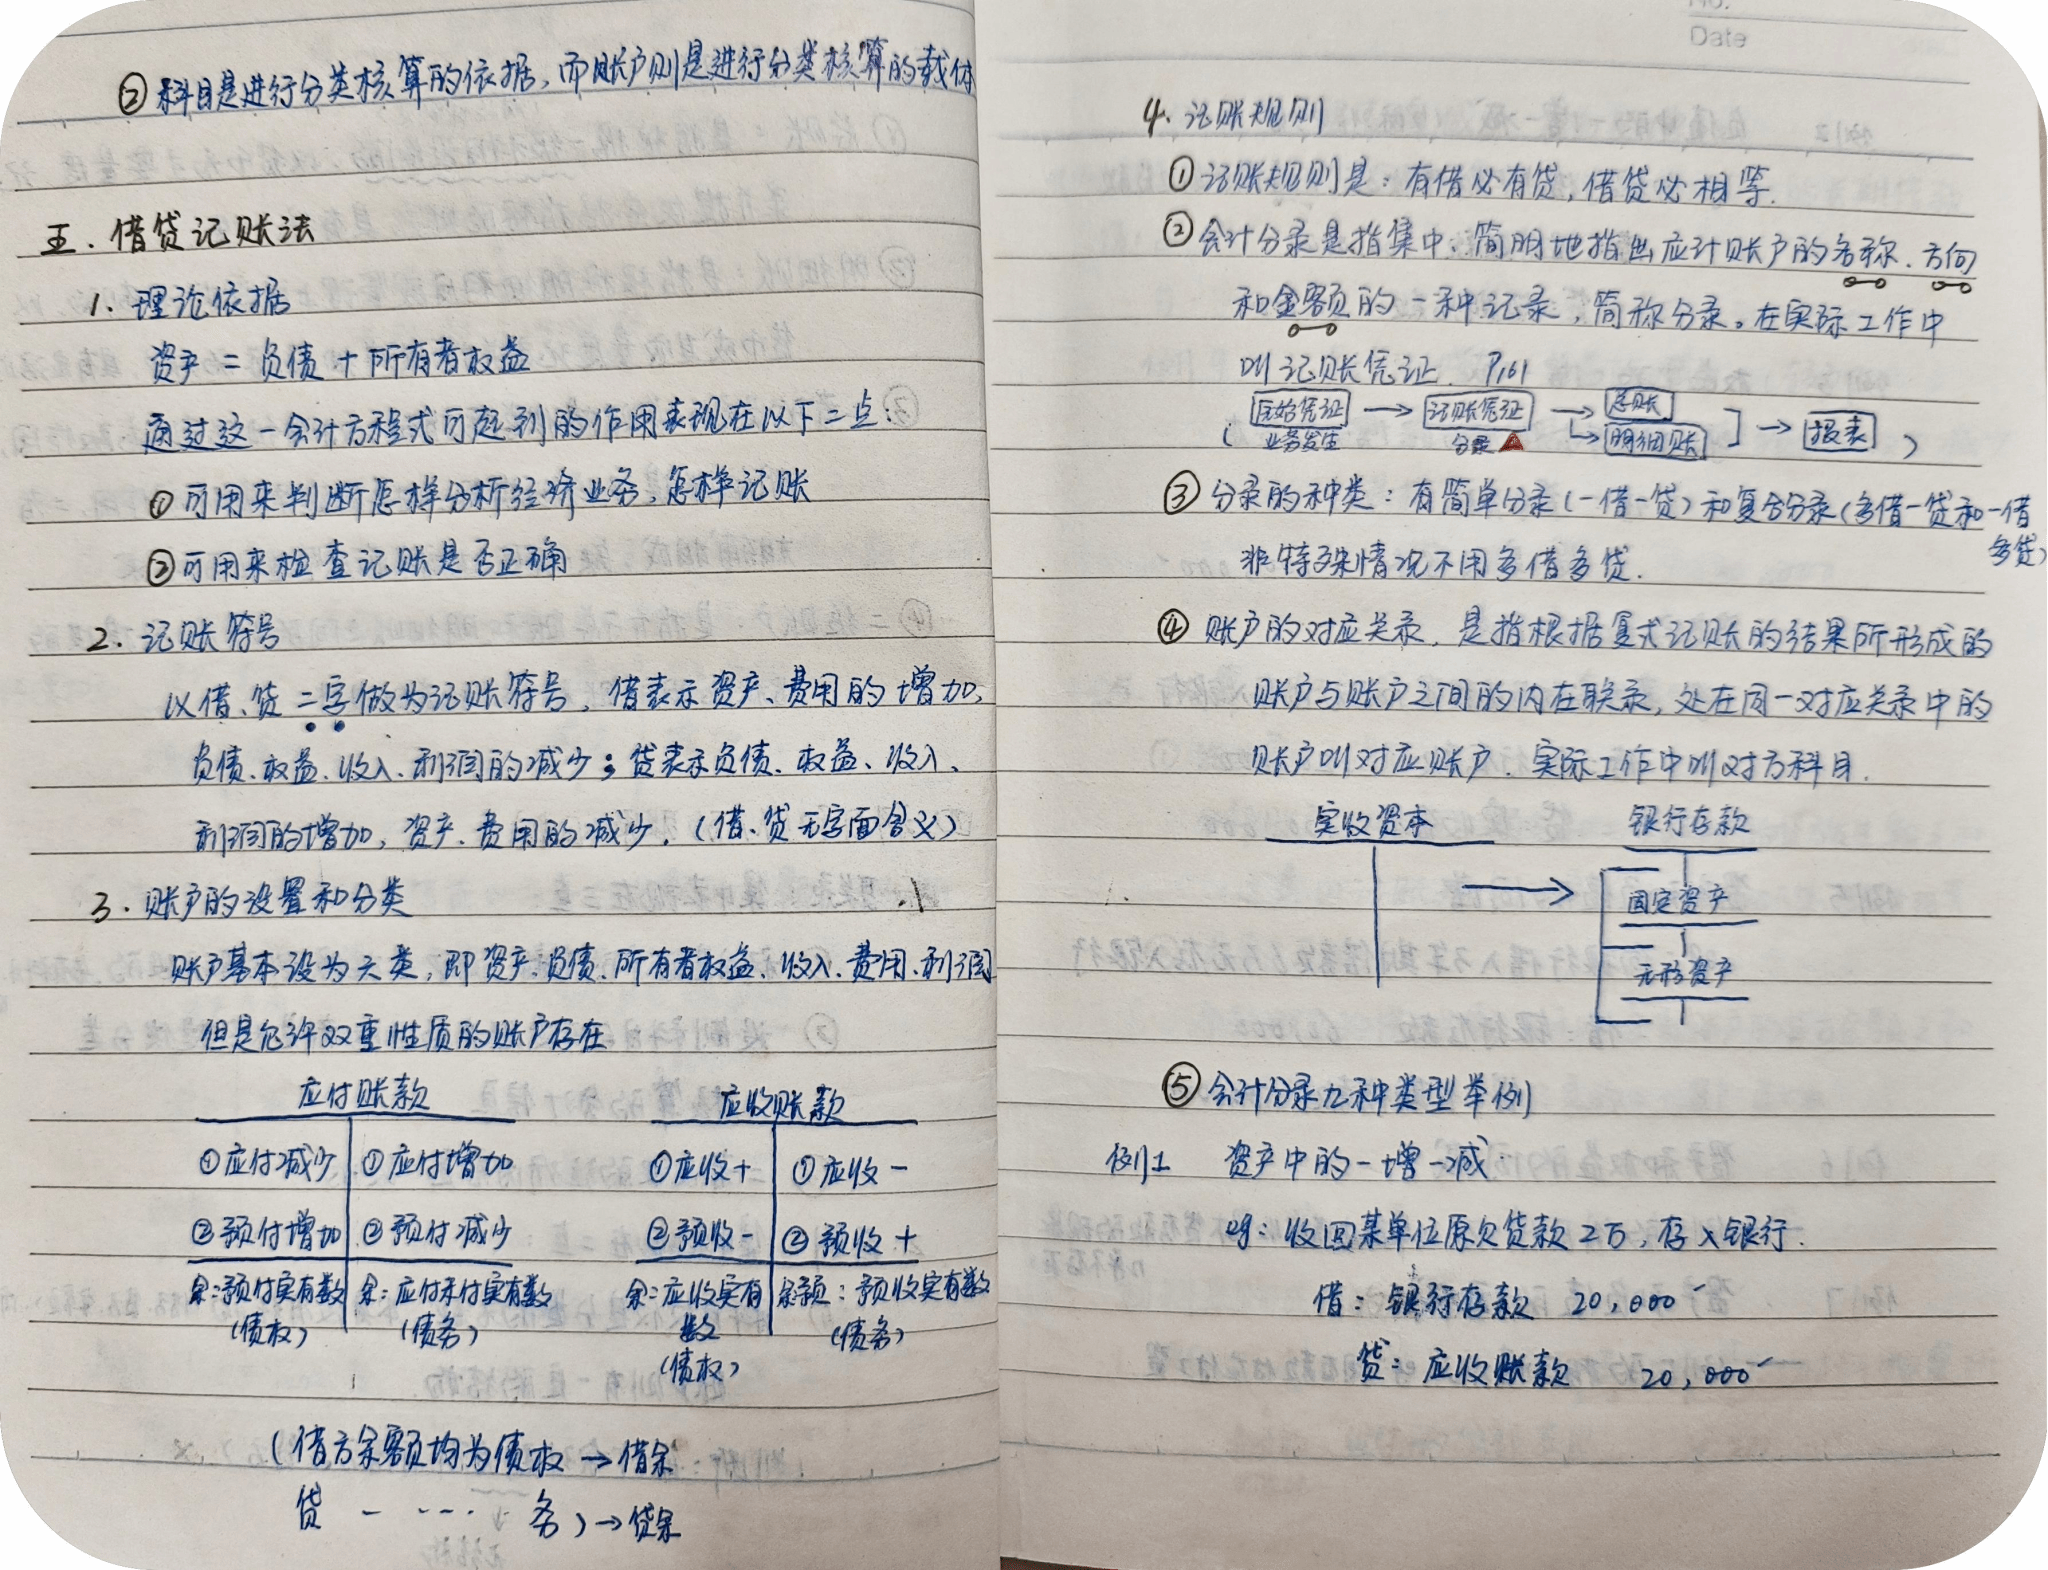 ②科目是进行分类核算的依据，而账户则是进行分类核算的载体
五.借贷记账法
1.理论依据
资产=负债+所有者权益
通过这一会计方程式可起到的作用表现在以下二点：
①可用来判断怎样分析经济业务，怎样记账
②可用来检查记账是否正确
2.记账符号
以借、贷二字做为记账符号，借表示资产、费用的增加，
负债、权益、收入、利润的减少；贷表示负债、权益、收入、
利润的增加，资产、费用的减少.（借、贷无字面含义）
3.账户的设置和分类
账户基本设为六类，即资产、负债、所有者权益、收入、费用、利润
但是允许双重性质的账户存在
应付账款 应收账款
①应付减少 ①应付增加 ①应收+ ①应收-
②预付增加 ②预付减少 ②预收- ②预收+
余：预付实有数 余：应付未付实有数 余：应收实有 预：预收实有数
（债权） （债务） 数 （债务）
（债权）
（借方余额均为债权→借余
贷 - --- 务）→贷余
No.
Date
4.记账规则
①记账规则是：有借必有贷，借贷必相等.
②会计分录是指集中、简明地指出应计账户的名称、方向
和金额的一种记录，简称分录。在实际工作中
叫记账凭证. P161
（ 原始凭证 → 记账凭证 → 总账 ] → 报表 ）
业务发生 分录 ↳ 明细账
③分录的种类：有简单分录(一借一贷)和复合分录(多借一贷和一借
多贷)
非特殊情况不用多借多贷.
④账户的对应关系，是指根据复式记账的结果所形成的
账户与账户之间的内在联系，处在同一对应关系中的
账户叫对应账户.实际工作中叫对方科目.
实收资本 银行存款
→ 固定资产
无形资产
⑤会计分录九种类型举例
例1 资产中的一增一减
eg：收回某单位原欠货款2万，存入银行.
借：银行存款 20,000
贷：应收账款 20,000